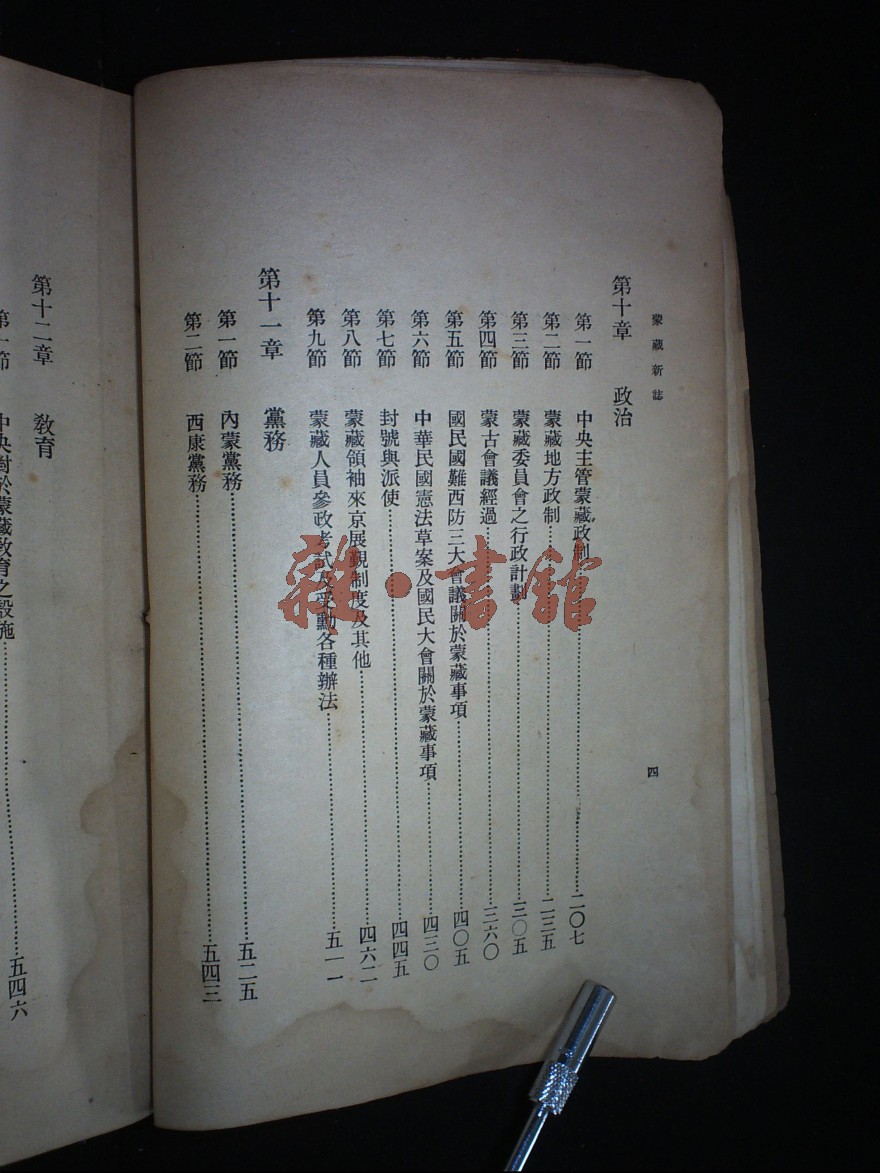 蒙藏新誌
四
第十章 政治
第一節 中央主管蒙藏政制 二〇七
第二節 蒙藏地方政制 二三五
第三節 蒙藏委員會之行政計劃 三〇五
第四節 蒙古會議經過 三六〇
第五節 國民國難西防三大會議關於蒙藏事項 四〇五
第六節 中華民國憲法草案及國民大會關於蒙藏事項 四三〇
第七節 封號與派使 四四五
第八節 蒙藏領袖來京展覲制度及其他 四六二
第九節 蒙藏人員參政考試及受勳各種辦法 五一一
第十一章 黨務
第一節 內蒙黨務 五二五
第二節 西康黨務 五四三
第十二章 教育
第一節 中央對於蒙藏教育之設施 五四六
雜·書館